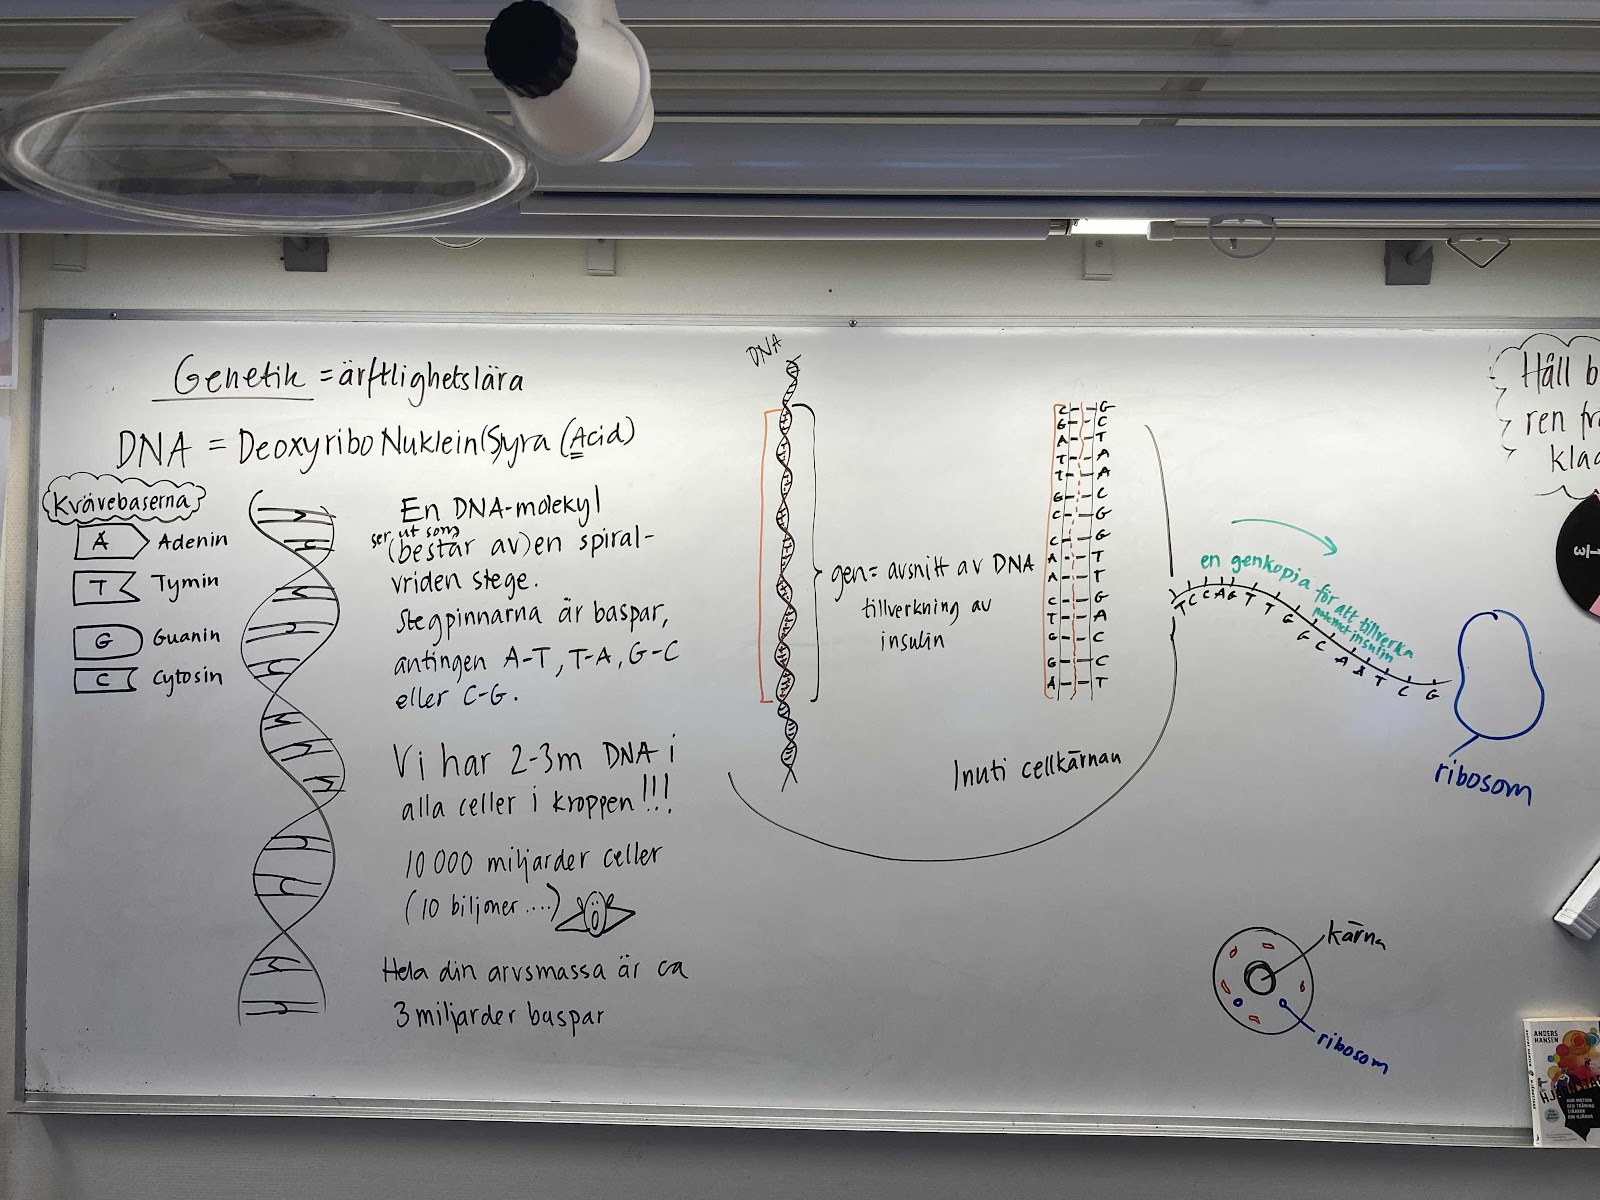 Genetik = ärftlighetslära
DNA = DeoxyriboNuklein(S)yra (Acid)
Kvävebaserna
A Adenin
T Tymin
G Guanin
C Cytosin
En DNA-molekyl
ser ut som
(består av) en spiral-
vriden stege.
Stegpinnarna är baspar,
antingen A-T, T-A, G-C
eller C-G.
Vi har 2-3m DNA i
alla celler i kroppen!!!
10 000 miljarder celler
(10 biljoner....)
Hela din arvsmassa är ca
3 miljarder baspar
DNA
gen = avsnitt av DNA
tillverkning av
insulin
C - - G
G - - C
A - - T
T - - A
T - - A
G - - C
C - - G
C - - G
A - - T
A - - T
C - - G
T - - A
G - - C
G - - C
A - - T
Inuti cellkärnan
en genkopia för att tillverka
proteinet insulin
T C C A G T T G G C A A T C G
ribosom
kärna
ribosom
Håll b
ren fr
klad
1/3
ANDERS
HANSEN